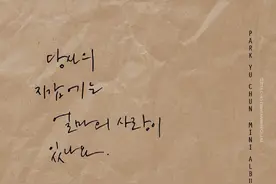 당신의
지갑에는
얼마의 사랑이
있나요.
PARK YU CHUN MINI ALBU